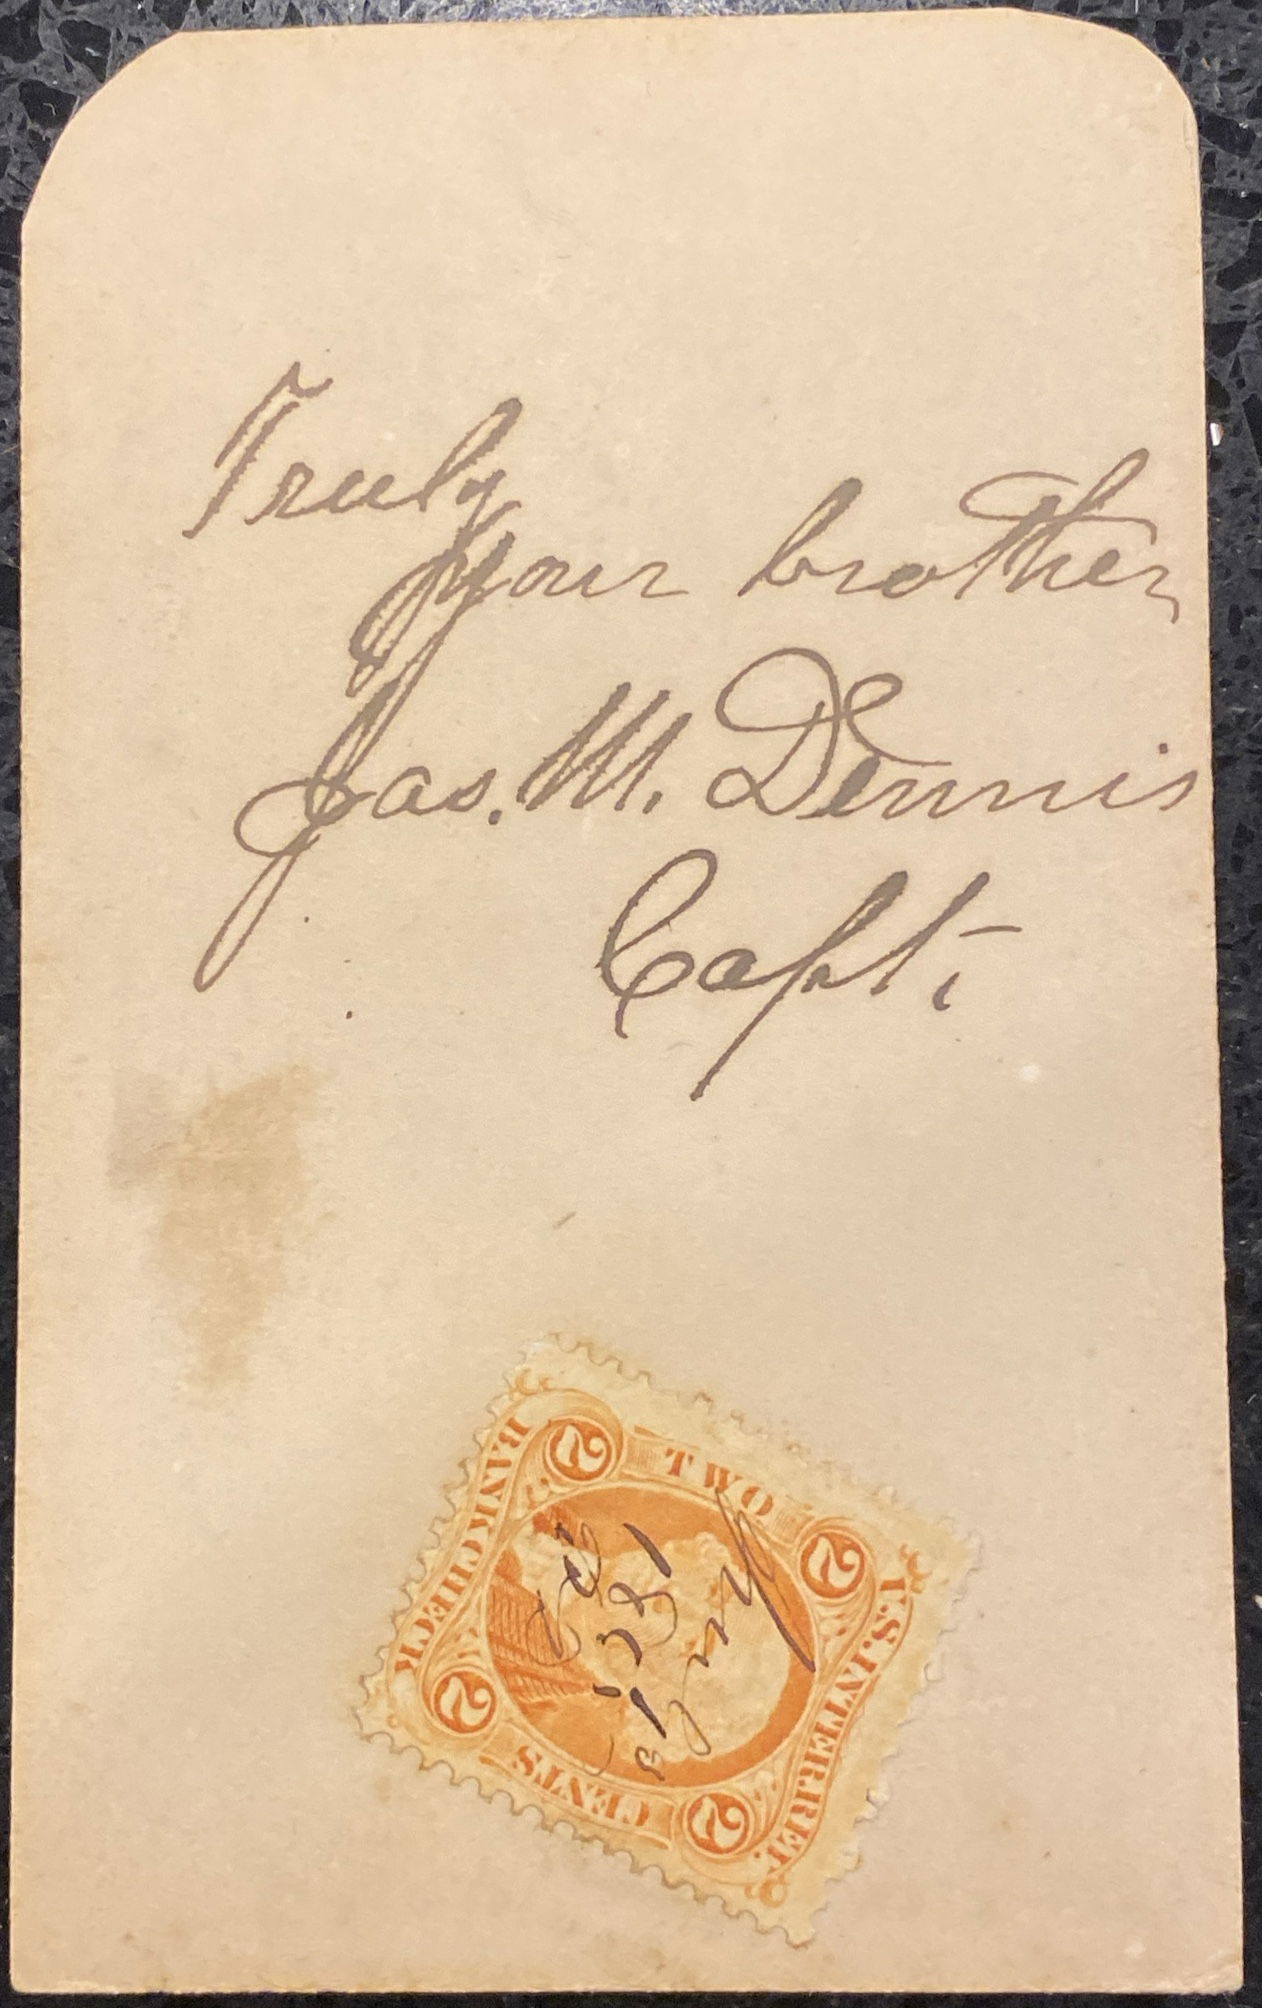 Truly
your brother
Jas. M. Dennis
Capt.
U.S. INTER. REV.
2 2
TWO CENTS
2 2
BANK CHECK